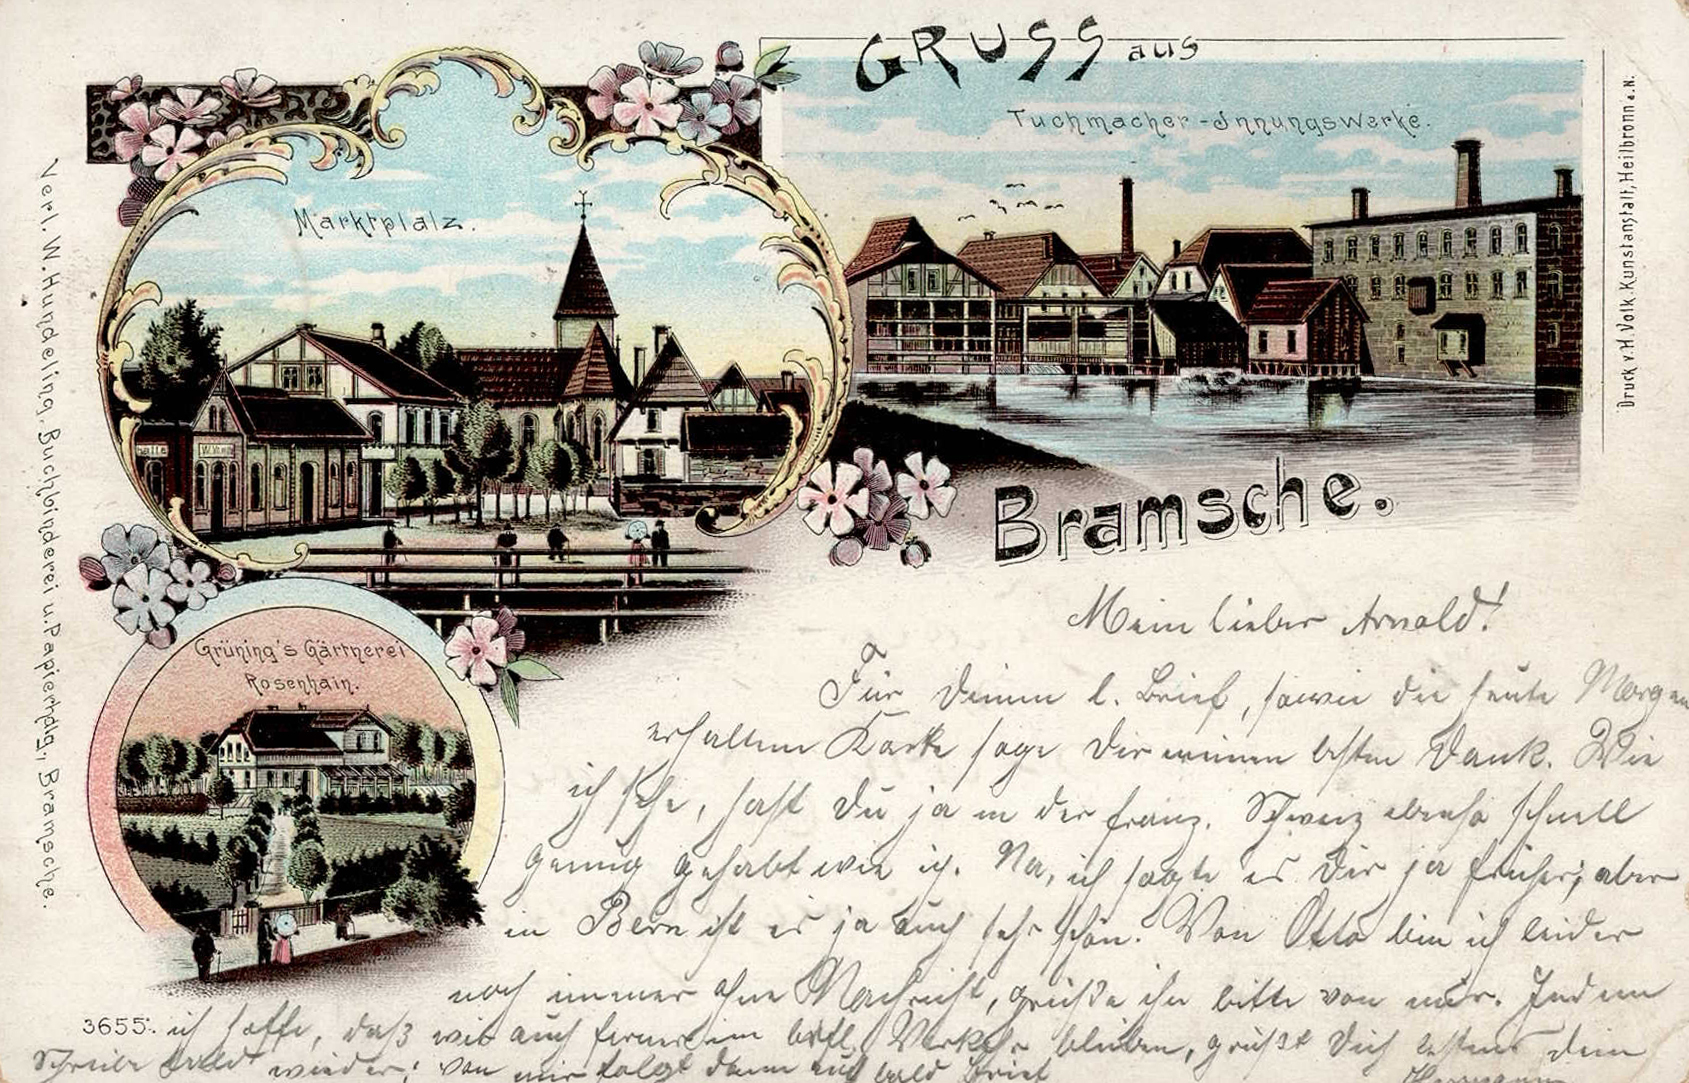 GRUSS aus
Tuchmacher-Innungswerke.
Marktplatz.
halle
Bramsche.
Grüning's Gärtnerei
Rosenhain.
Verl. W. Hundeling, Buchbinderei u. Papierhdlg., Bramsche.
Druck v. H. Volk. Kunstanstalt, Heilbronn a. N.
Mein lieber Arnold!
Für Deinen l. Brief, sowie die heute Morgen
erhaltene Karte sage Dir meinen besten Dank. Wie
ich sehe, hast Du ja in der franz. Schweiz ebenso schnell
genug gehabt wie ich. Na, ich sagte es Dir ja früher; aber
in Bern ist es ja auch sehr schön. Von Otto bin ich leider
noch immer ohne Nachricht, grüße ihn bitte von mir. Indem
3655. ich hoffe, daß wir auch ferner im Verkehr bleiben, grüßt Dich bestens Dein
Schreibe bald wieder; von mir folgt dann auch bald Brief Hermann